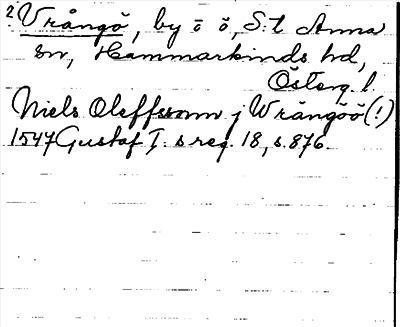 2 Vrångö, by o ö, S:t Anna
sn, Hammarkinds hd,
Österg. l.
Niels Oleffssonn j Wrångöö (!)
1547 Gustaf I. s reg. 18, s. 876.